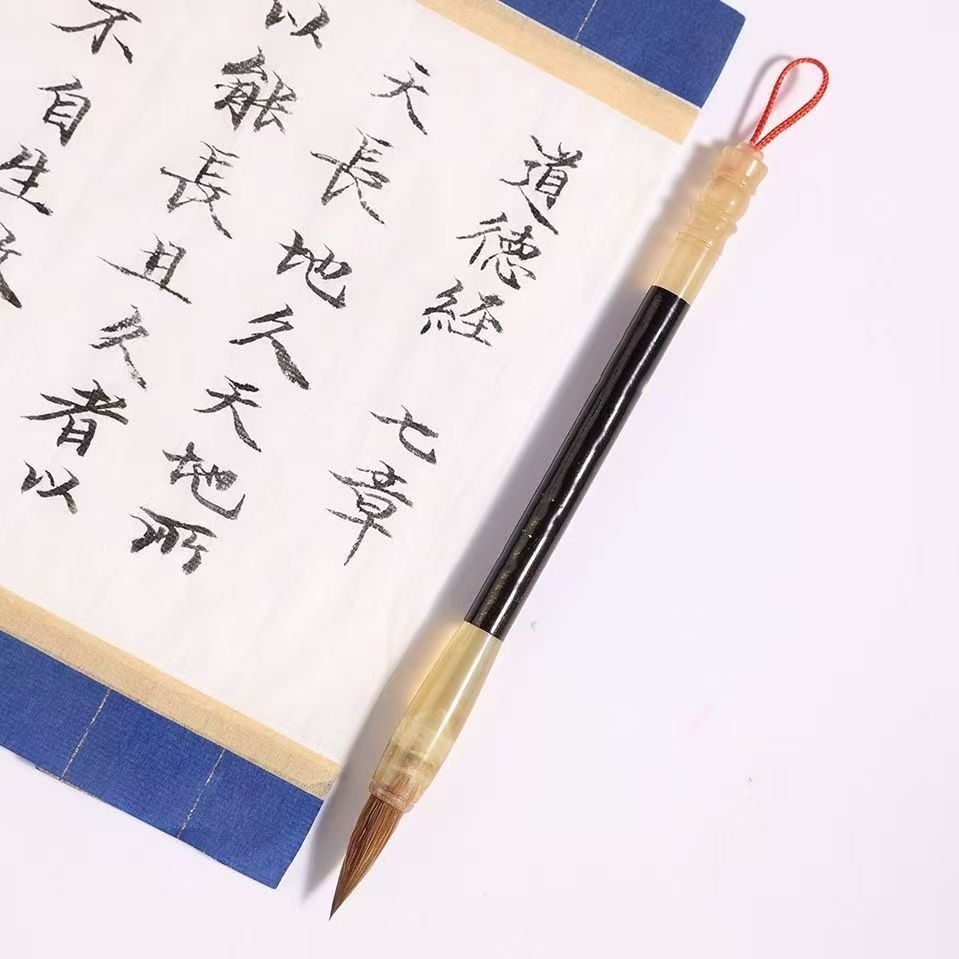 道德経 七章
天長地久天地所
以能長且久者以
不自生